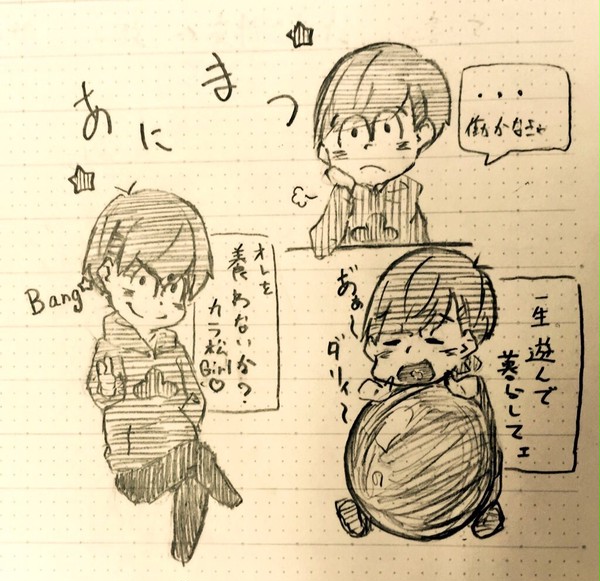 あにまつ
…
働かなきゃ
Bang
オレを
養わないか?
カラ松
Girl♡
あぁ〜
ダリィ〜
一生遊んで
暮らしてェ